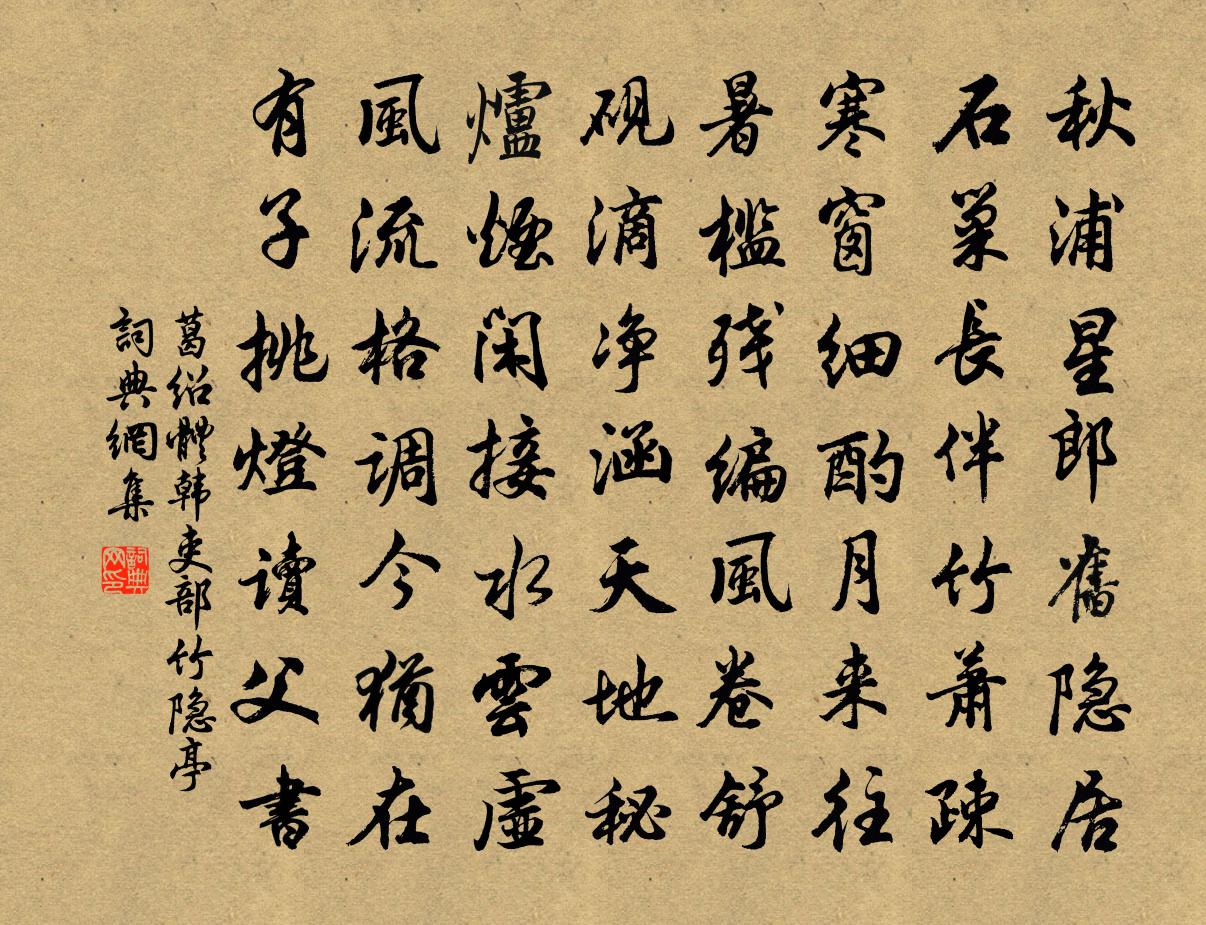 秋浦星郎舊隐居
石巢長伴竹蕭疎
寒窗细酌月来往
暑槛残编風卷舒
砚滴净涵天地秘
爐煙闲接水雲虛
風流格调今猶在
有子挑燈讀父書
葛绍體韩吏部竹隐亭
詞典網集
詞典
网印